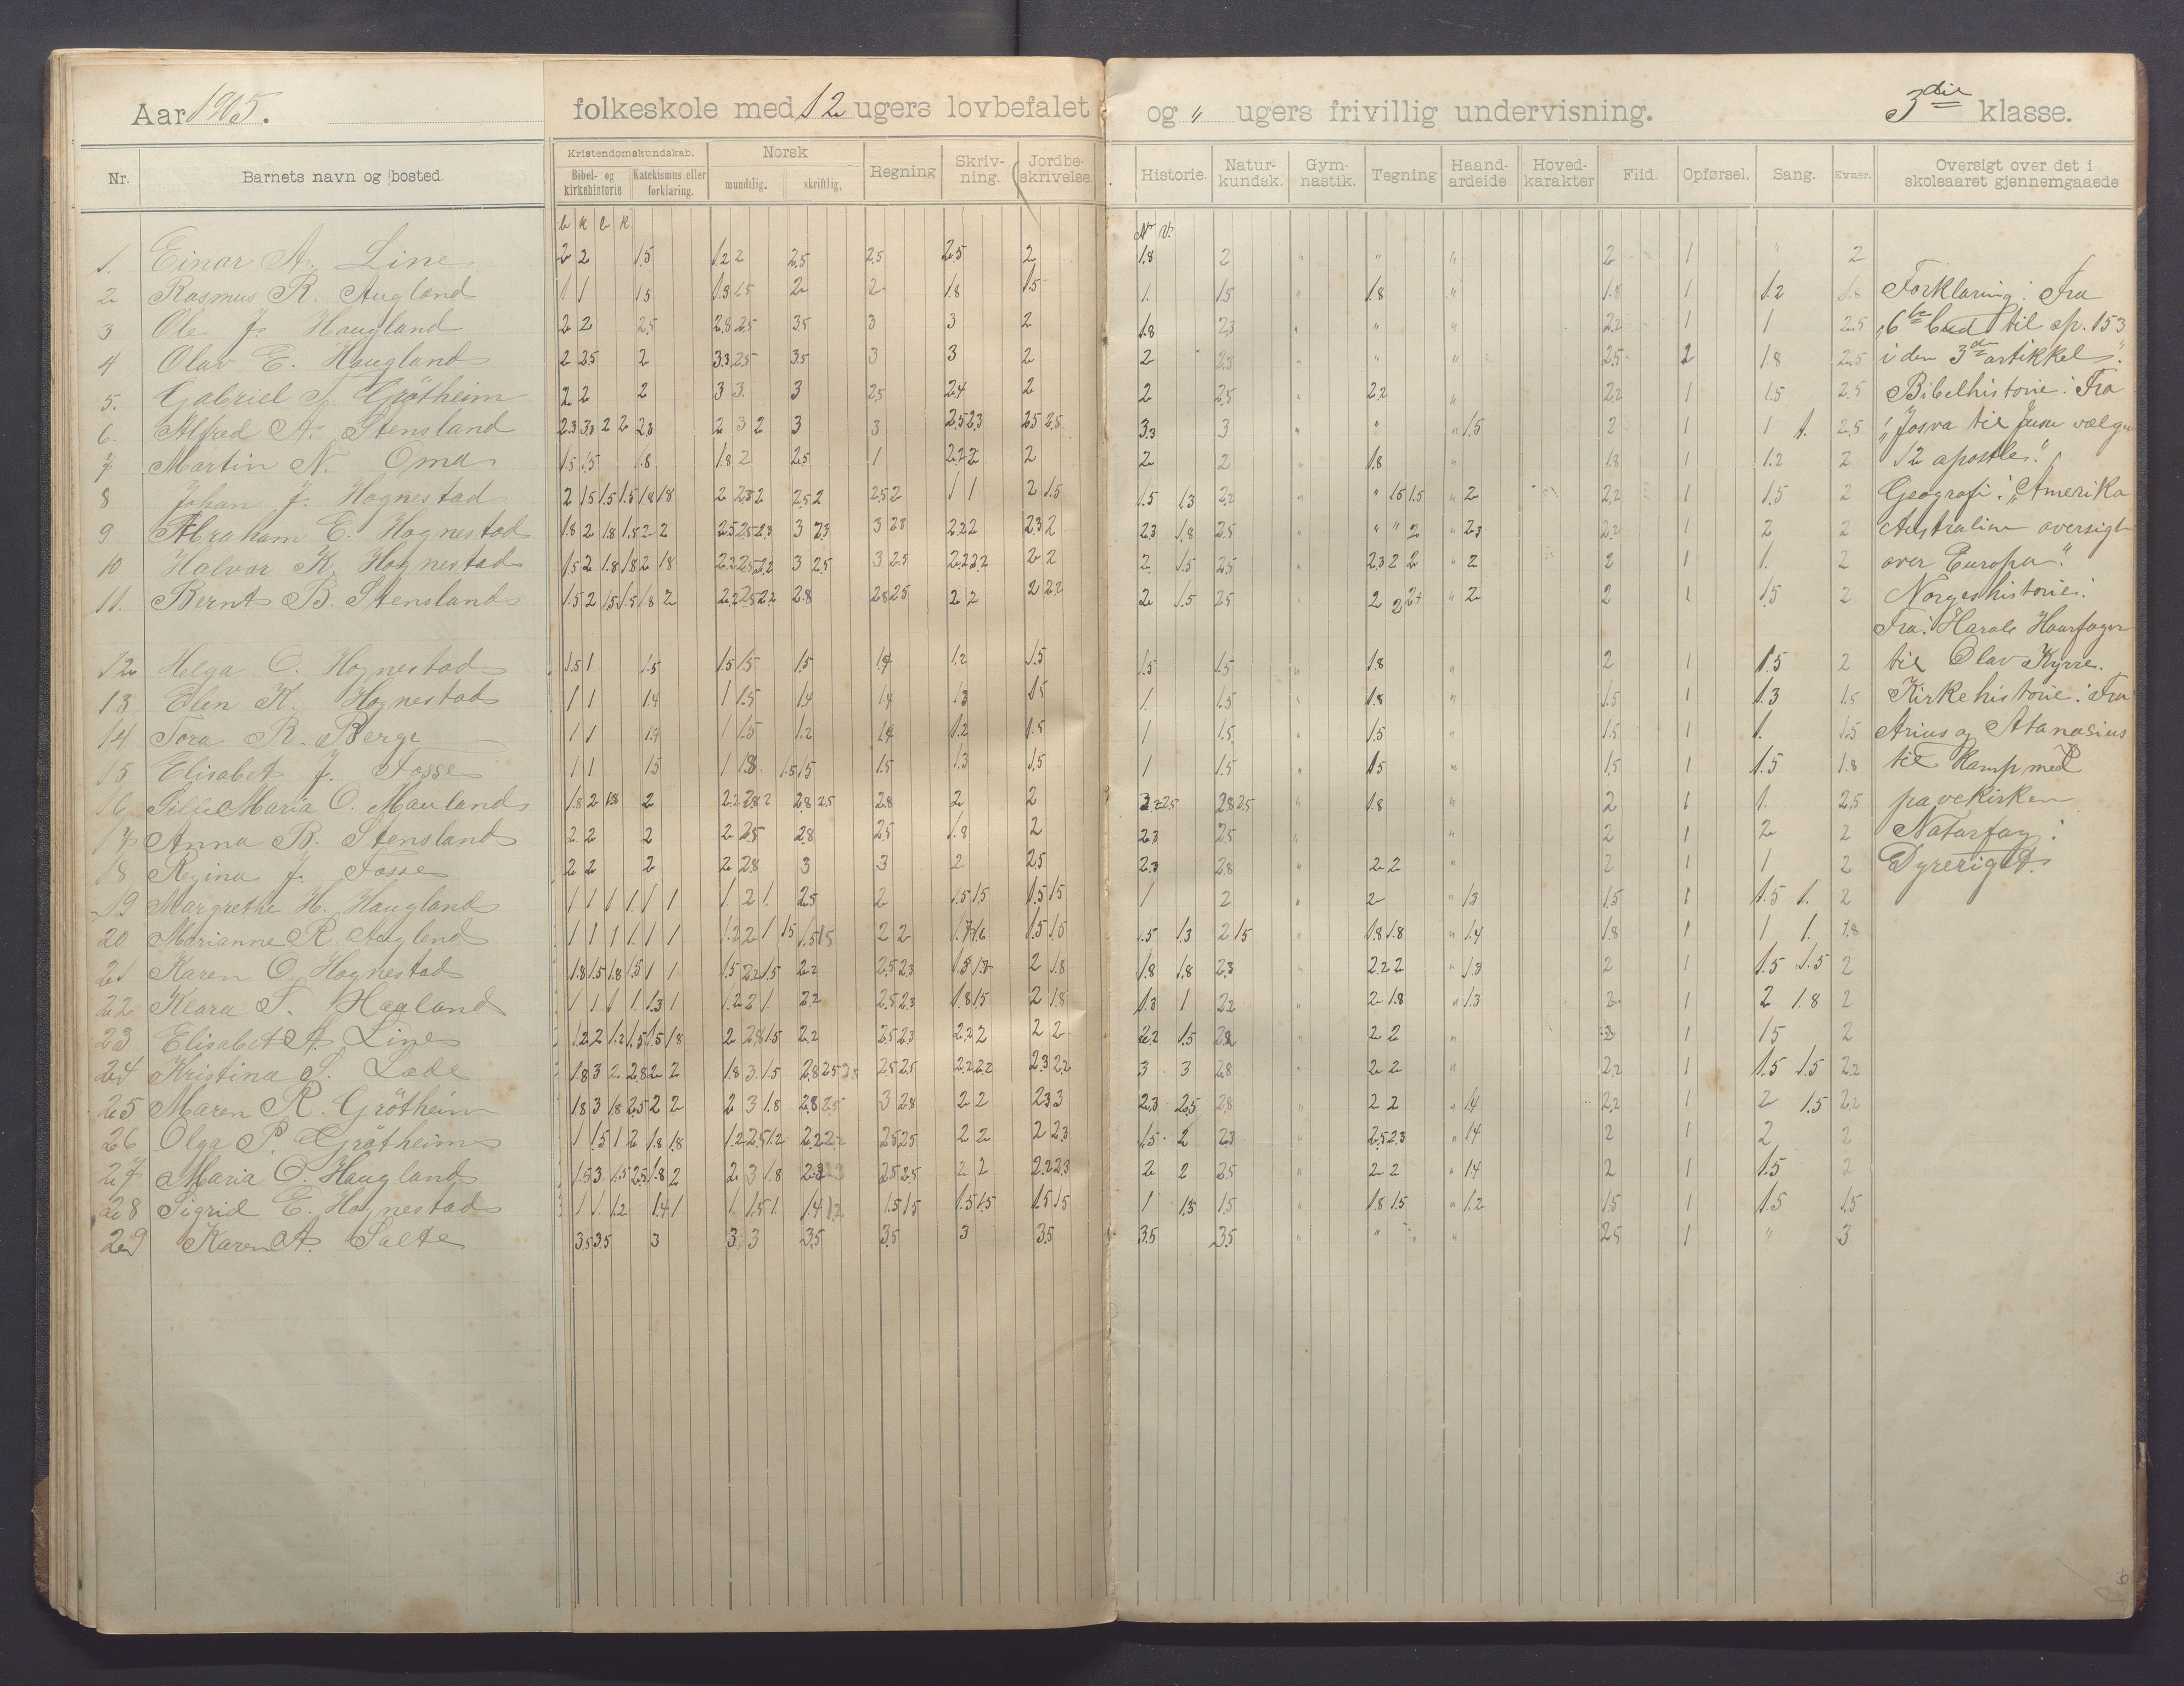 Aar 1905.
folkeskole med 12 ugers lovbefalet og " ugers frivillig undervisning.
3die klasse.
Nr. Barnets navn og bosted. Kristendomskundskab. Bibel- og kirkehistorie Katekismus eller forklaring. Norsk mundtlig. skriftlig, Regning Skriv-ning. Jordbe-skrivelse. Historie. Natur-kundsk. Gym-nastik. Tegning Haand-arbeide Hoved-karakter Flid. Opførsel. Sang. Evner. Oversigt over det i skoleaaret gjennemgaaede
b k b k N. V.
1. Einar A. Line 2 2 1.5 1.2 2 2.5 2.5 2.5 2 1.8 2 " " " 2 1 " 2
2 Rasmus R. Augland 1 1 1.5 1.8 1.5 2 2 1.8 1.5 1. 1.5 " 1.8 " 1.8 1 1.2 1.8
3 Ole J. Haugland 2 2 2.5 2.8 2.5 3.5 3 3 2 1.8 2.3 " " " 2.2 1 1 2.5
4 Olav E. Haugland 2 2.5 2 3.3 2.5 3.5 3 3 2 2 2.3 " " " 2.5 2 1.8 2.5
5. Gabriel T. Grötheim 2 2 2 3 3. 3 2.5 2.4 2 2 2.5 " 2.2 " 2.2 1 1.5 2.5
6. Alfred A. Stensland 2.3 3.3 2 2 2.3 2 3 2 3 3 2.5 2.3 2.5 2.5 3.3 3 " " " 1.5 2 1 1 1. 2.5
7 Martin N. Oma 1.5 1.5 1.8 1.8 2 2.5 1 2.2 2 2 2 2 " 1.8 1.8 1 1.2 2
8 Johan J. Hognestad 2 1.5 1.5 1.5 1.8 1.8 2 2.5 2 2.5 2 2.5 2 1 1 2 1.5 1.5 1.3 2.2 " " 1.5 1.5 " 2 2.2 1 1.5 2
9 Abraham E. Hognestad 1.8 2 1.8 1.5 2 2 2.5 2.5 2.3 3 2.3 3 2.8 2.2 2 2.3 2 2.3 1.8 2.5 " " " 2 " 2.3 2.2 1 2 2
10 Halvar K. Hognestad 1.5 2 1.8 1.8 2 1.8 2.2 2.5 2.2 3 2.5 3 2.5 2.2 2.2 2 2 2 1.5 2.5 " 2.3 2 2 " 2 2 1 1. 2
11. Bernt B. Stensland 1.5 2 1.5 1.5 1.8 2 2.2 2.5 2.2 2.8 2.8 2.5 2 2 2 2.2 2 1.5 2.5 " 2 2 2.4 " 2 2 1 1.5 2
12 Helga O. Hognestad 1.5 1 1.5 1.5 1.5 1.5 1.4 1.2 1.5 1.5 1.5 " 1.8 " 2 1 1.5 2
13 Elen K. Hognestad 1 1 1.4 1 1.5 1.4 1.4 1.3 1.5 1. 1.5 " 1.8 " 1.5 1 1.3 1.5
14 Tora R. Berge 1 1 1.4 1 1.5 1.2 1.4 1.2 1.5 1 1.5 " 1.5 " 1.5 1 1. 1.5
15 Elisabet J. Fosse 1 1 1.5 1 1.8. 1.5 1.5 1.5 1.3 1.5 1 1.5 " 1.5 " 1.5 1 1.5 1.8
16 Sille Maria O. Mauland 1.8 2 1.8 2 2.2 2.8 2 2.8 2.5 2.8 2 2 2.2 2.5 2.8 2.5 " 1.8 " 2 1 1. 2.5
17 Anna B. Stensland 2 2 2 2 2.5 2.8 2.5 1.8 2 2.3 2.5 " " 2 1 2 2
18 Regina J. Fosse 2 2 2 2 2.8 3 3 2 2.5 2.3 2.8 " 2 2 " 2 1 1 2
19 Margrethe H. Haugland 1 1 1 1. 1 1 1. 2 1. 2.5 2 1.5 1.5 1.5 1.5 1 2 " 2 " 1.3 1.5 1 1.5 1. 2
20 Marianne R Augland 1 1 1 1. 1 1 1.2 2 1 1.5 1.5 1.5 2 2 1.7 1.6 1.5 1.5 1.5 1.3 2 1.5 " 1.8 1.8 " 1.4 1.8 1 1 1. 1.8
21 Karen O. Hognestad 1.8 1.5 1.8 1.5 1 1 1.5 2.2 1.5 2.2 2.5 2.3 1.5 1.3 2 1.8 1.8 1.8 2.3 " 2.2 2 " 1.3 2 1 1.5 1.5 2
22 Klara S. Haaland 1 1 1 1. 1.3 1 1.2 2 1. 2.2 2.5 2.3 1.8 1.5 2 1.8 1.3 1 2.2 " 2 1.8 " 1.3 2 1 2 1.8 2
23 Elisabet A. Line 1.2 2 1.2 1.5 1.5 1.8 2 2.8 1.5 2.2 2.5 2.3 2.2 2 2 2 2.2 1.5 2.8 " 2 2 " 2 1 1.5 2
24 Kristina S. Lode 1.8 3 2 2.8 2 2 1.8 3. 1.5 2.8 2.5 2.5 2.5 2.2 2.2 2.3 2.2 3 3 2.8 " 2 2 " 2.2 1 1.5 1.5 2.2
25 Maren R. Grötheim 1.8 3 1.8 2.5 2 2 2 3 1.8 2.8 2.5 3 2.8 2 2 2.3 3 2.3 2.5 2.8 " 2 2 " 1.4 2.2 1 2 1.5 2.2
26 Olga P. Grötheim 1 1.5 1 2 1.8 1.8 1.2 2.5 1.2 2.2 2.2 2.5 2.5 2 2 2 2.3 1.5. 2 2.3 " 2.5 2.3 " 1.4 2 1 2 2
27 Maria O. Haugland 1.5 3 1.5 2.5 1.8 2 2 3 1.8 2.5 2.5 2 2 2.2 2.3 2 2 2.5 " 2 2 " 1.4 2 1 1.5 2
28 Sigrid E. Hognestad 1 1. 1.2 1.4 1 1 1.5 1. 1.4 1.2 1.5 1.5 1.5 1.5 1.5 1.5 1 1.3 1.5 " 1.8 1.5 " 1.2 1.5 1 1.5 1.5
29 Karen A. Salte 3.5 3.5 3 3. 3 3.5 3.5 3 3.5 3.5 3.5 " " " " 2.5 1 " 3
Forklaring: Fra
"6te bud til sp. 153
i den 3die artikkel".
Bibelhistorie: Fra
"Josva til Jesu vælger
12 apostle."
Geografi: "Amerika
Australien oversigt
over Europa."
Norgeshistorie:
Fra: Harald Haarfager
til Olav Kyrre.
Kirkehistorie: Fra
Arius og Atanasius
til Kamp med
pavekirken
Naturfag:
Dyreriget.